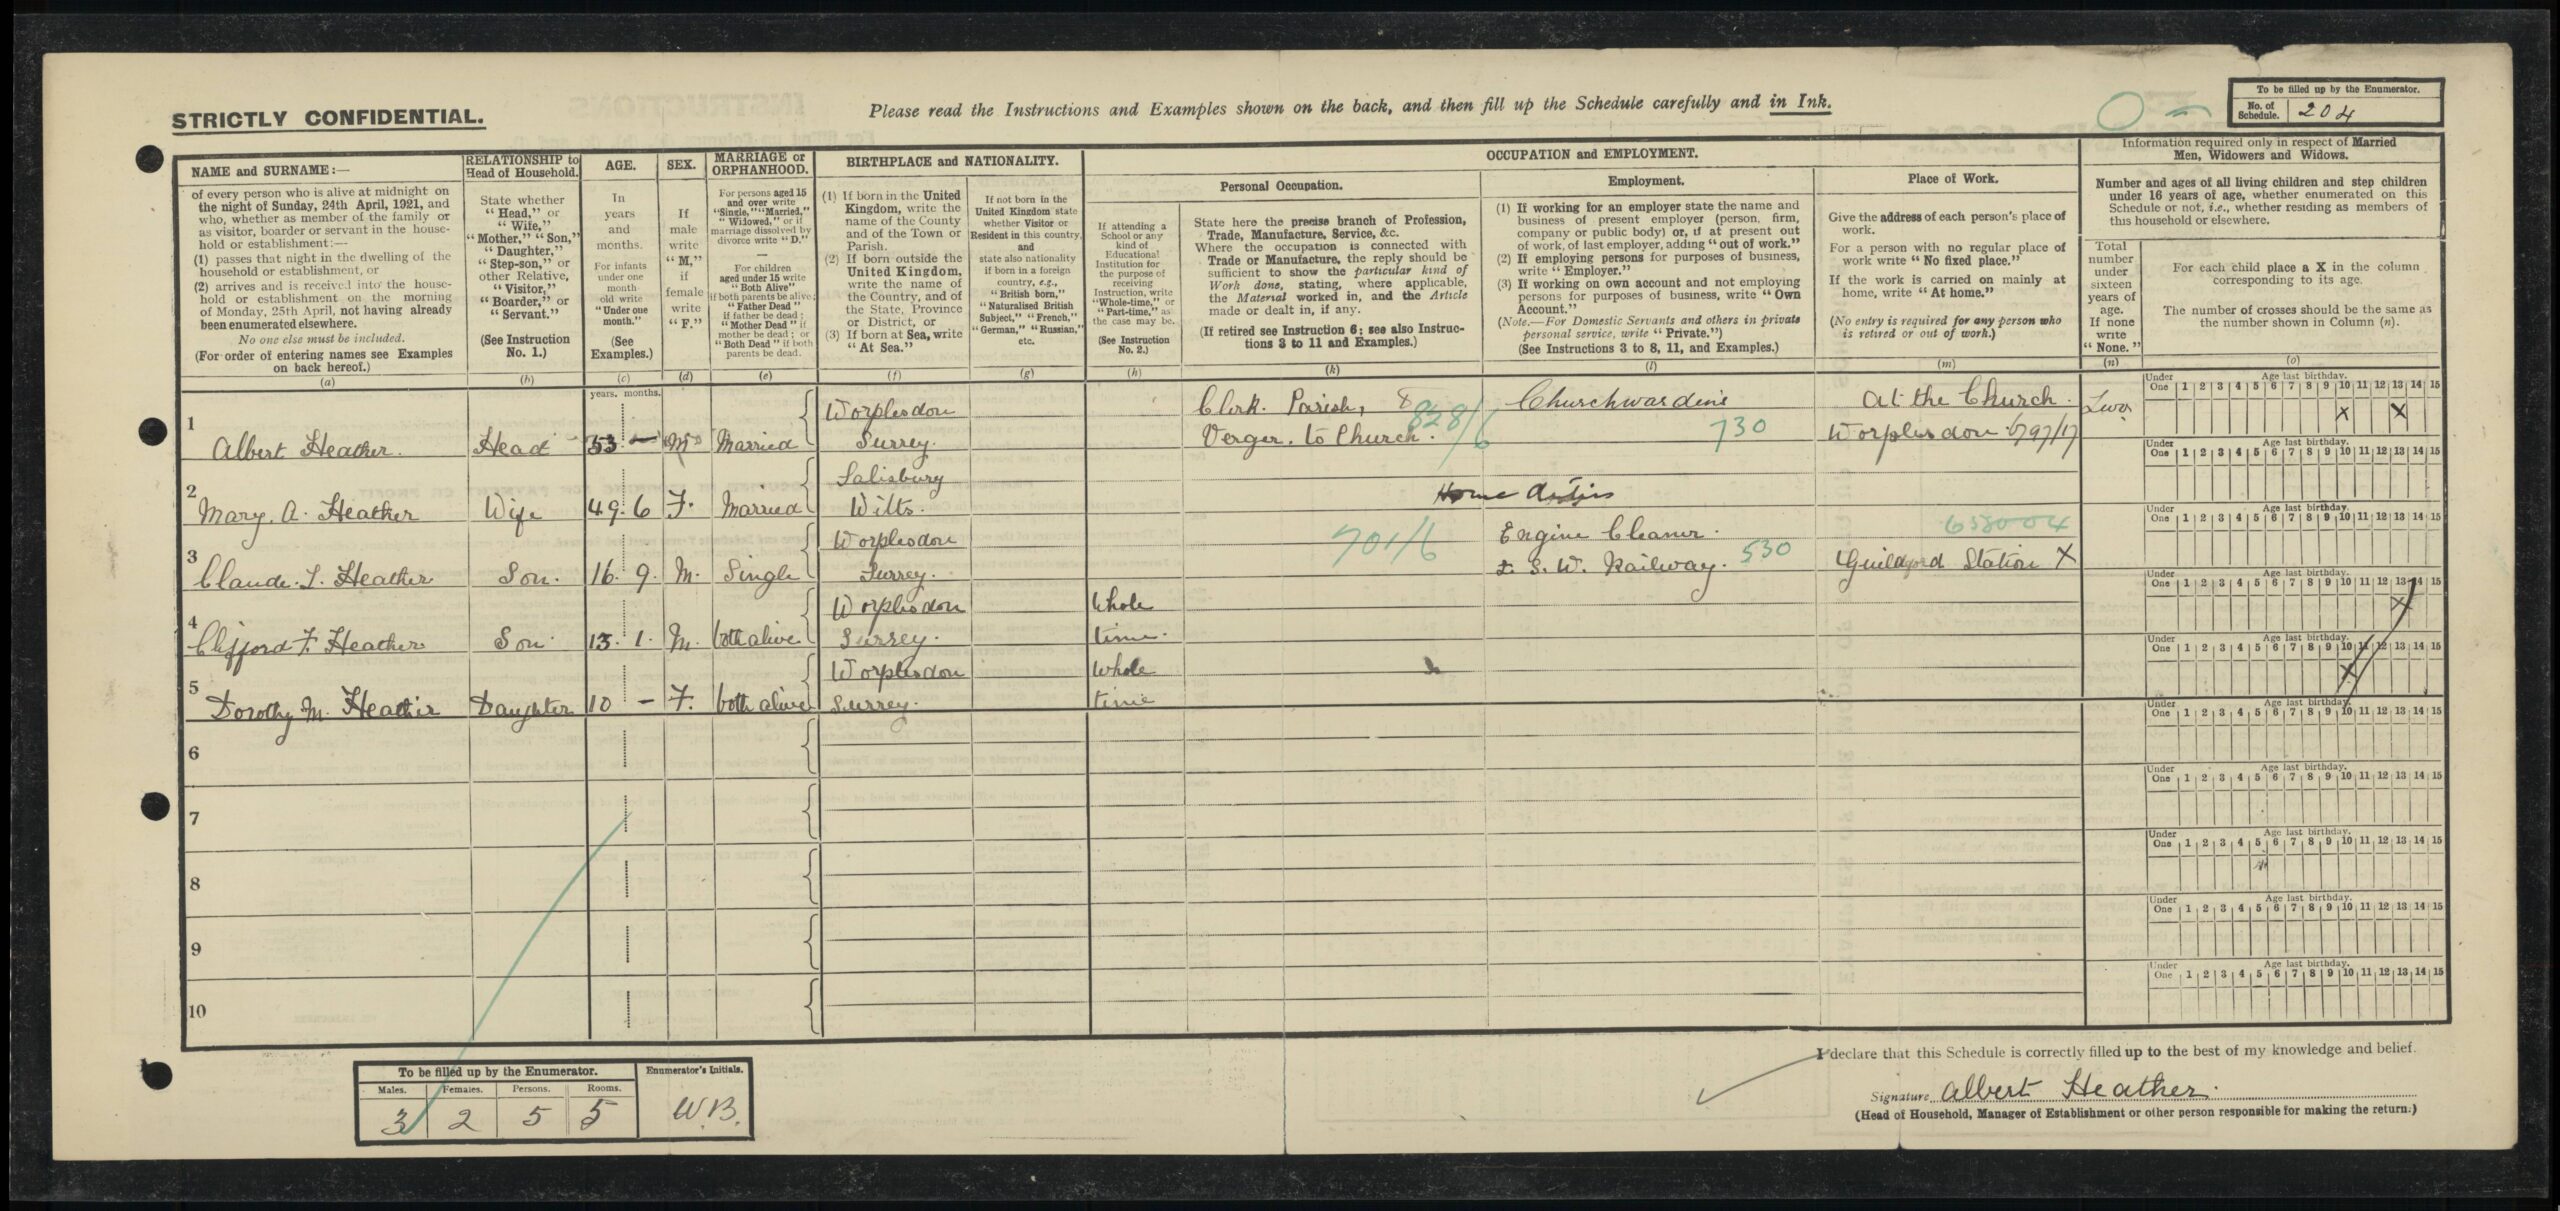 STRICTLY CONFIDENTIAL.
Please read the Instructions and Examples shown on the back, and then fill up the Schedule carefully and in Ink.
To be filled up by the Enumerator.
No. of Schedule. 204
NAME and SURNAME:—
of every person who is alive at midnight on
the night of Sunday, 24th April, 1921, and
who, whether as member of the family or
as visitor, boarder or servant in the house-
hold or establishment:—
(1) passes that night in the dwelling of the
household or establishment, or
(2) arrives and is received into the house-
hold or establishment on the morning
of Monday, 25th April, not having already
been enumerated elsewhere.
No one else must be included.
(For order of entering names see Examples
on back hereof.)
(a)
RELATIONSHIP to
Head of Household.
State whether
"Head," or
"Wife,"
"Mother," "Son,"
"Daughter,"
"Step-son," or
other Relative,
"Visitor,"
"Boarder," or
"Servant."
(See Instruction
No. 1.)
(b)
AGE.
In
years
and
months.
For infants
under one
month
old write
"Under one
month."
(See
Examples.)
(c)
SEX.
If
male
write
"M,"
if
female
write
"F."
(d)
MARRIAGE or
ORPHANHOOD.
For persons aged 15
and over write
"Single," "Married,"
"Widowed," or if
marriage dissolved by
divorce write "D."
—
For children
aged under 15 write
"Both Alive"
if both parents be alive;
"Father Dead"
if father be dead;
"Mother Dead" if
mother be dead; or
"Both Dead" if both
parents be dead.
(e)
BIRTHPLACE and NATIONALITY.
(1) If born in the United
Kingdom, write the
name of the County
and of the Town or
Parish.
(2) If born outside the
United Kingdom,
write the name of
the Country, and of
the State, Province
or District, or
(3) If born at Sea, write
"At Sea."
(f)
If not born in the
United Kingdom state
whether Visitor or
Resident in this country,
and
state also nationality
if born in a foreign
country, e.g.,
"British born,"
"Naturalised British
Subject," "French,"
"German," "Russian,"
etc.
(g)
OCCUPATION and EMPLOYMENT.
If attending a
School or any
kind of
Educational
Institution for
the purpose of
receiving
Instruction, write
"Whole-time," or
"Part-time," as
the case may be.
(See Instruction
No. 2.)
(h)
Personal Occupation.
State here the precise branch of Profession,
Trade, Manufacture, Service, &c.
Where the occupation is connected with
Trade or Manufacture, the reply should be
sufficient to show the particular kind of
Work done, stating, where applicable,
the Material worked in, and the Article
made or dealt in, if any.
(If retired see Instruction 6; see also Instruc-
tions 3 to 11 and Examples.)
(k)
Employment.
(1) If working for an employer state the name and
business of present employer (person, firm,
company or public body) or, if at present out
of work, of last employer, adding "out of work."
(2) If employing persons for purposes of business,
write "Employer."
(3) If working on own account and not employing
persons for purposes of business, write "Own
Account."
(Note.—For Domestic Servants and others in private
personal service, write "Private.")
(See Instructions 3 to 8, 11, and Examples.)
(l)
Place of Work.
Give the address of each person's place of
work.
For a person with no regular place of
work write "No fixed place."
If the work is carried on mainly at
home, write "At home."
(No entry is required for any person who
is retired or out of work.)
(m)
Information required only in respect of Married
Men, Widowers and Widows.
Number and ages of all living children and step children
under 16 years of age, whether enumerated on this
Schedule or not, i.e., whether residing as members of
this household or elsewhere.
Total
number
under
sixteen
years of
age.
If none
write
"None."
(n)
For each child place a X in the column
corresponding to its age.
The number of crosses should be the same as
the number shown in Column (n).
(o)
years. months.
Under One Age last birthday. 1 2 3 4 5 6 7 8 9 10 11 12 13 14 15
1 Albert Heather. Head 53 — M Married Worplesdon Surrey. Clerk. Parish, Verger. to Church. 828/6 Churchwardens 730 At the Church. Worplesdon 797/17 Two X X
Under One Age last birthday. 1 2 3 4 5 6 7 8 9 10 11 12 13 14 15
2 Mary. A. Heather Wife 49. 6 F. Married Salisbury Wilts. Home duties
Under One Age last birthday. 1 2 3 4 5 6 7 8 9 10 11 12 13 14 15
3 Claude. Heather Son. 16. 9. M. Single Worplesdon Surrey. 701/6 Engine Cleaner. L. S. W. Railway. 530 658004 Guildford Station X
Under One Age last birthday. 1 2 3 4 5 6 7 8 9 10 11 12 13 14 15
4 Clifford F. Heather Son 13. 1. M. both alive Worplesdon Surrey. Whole time. X
Under One Age last birthday. 1 2 3 4 5 6 7 8 9 10 11 12 13 14 15
5 Dorothy M. Heather Daughter 10 — F. both alive Worplesdon Surrey. Whole time X
Under One Age last birthday. 1 2 3 4 5 6 7 8 9 10 11 12 13 14 15
6
Under One Age last birthday. 1 2 3 4 5 6 7 8 9 10 11 12 13 14 15
7
Under One Age last birthday. 1 2 3 4 5 6 7 8 9 10 11 12 13 14 15
8
Under One Age last birthday. 1 2 3 4 5 6 7 8 9 10 11 12 13 14 15
9
Under One Age last birthday. 1 2 3 4 5 6 7 8 9 10 11 12 13 14 15
10
To be filled up by the Enumerator.
Males. Females. Persons. Rooms.
3 2 5 5
Enumerator's Initials.
W.B.
I declare that this Schedule is correctly filled up to the best of my knowledge and belief.
Signature Albert Heather.
(Head of Household, Manager of Establishment or other person responsible for making the return.)